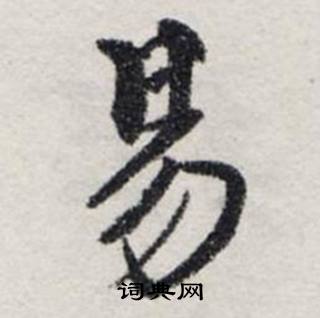 易
词典网